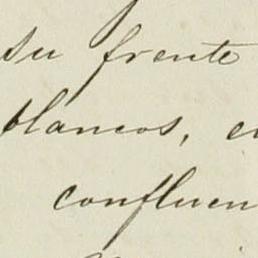 su frente
blancos, e
confluen